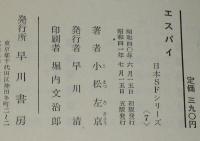 エスパイ
日本SFシリーズ〈7〉
昭和四〇年六月一五日 初版発行
昭和四一年七月一五日 五版発行
定価 三九〇円
著者 小松左京
こまつさきょう
発行者 早川清
印刷者 堀内文治郎
発行所 早川書房
東京都千代田区神田多町二ノ二